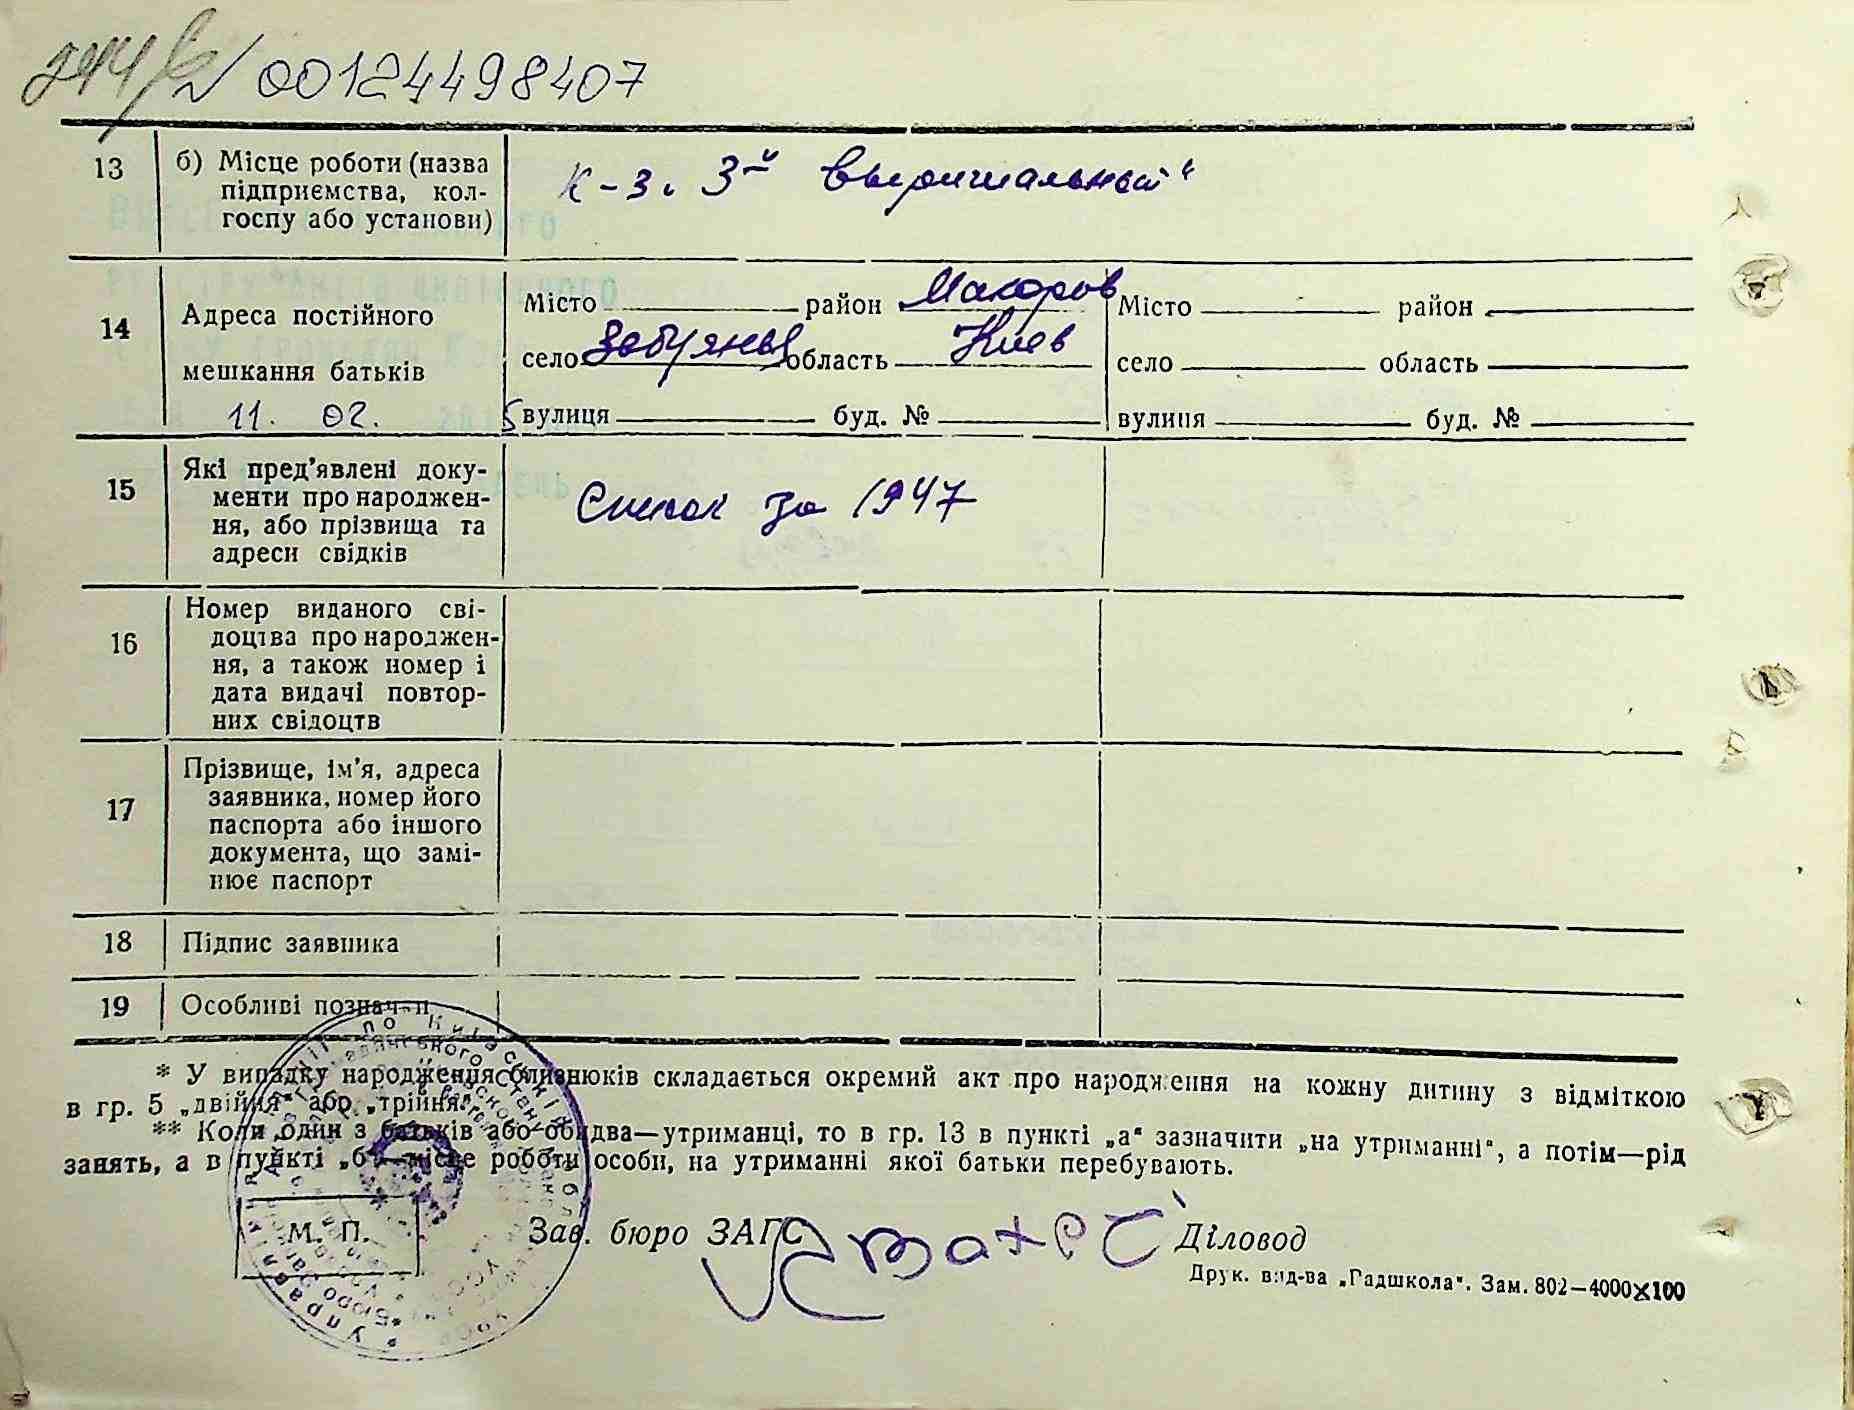 00124498407
13 б) Місце роботи (назва
підприємства, кол-
госпу або установи)
к-з. 3й
14 Адреса постійного
мешкання батьків
11. 02.
Місто район Макаров
село область Киев
вулиця буд. №
Місто район
село область
вулиця буд. №
15 Які пред'явлені доку-
менти про народжен-
ня, або прізвища та
адреси свідків
Список за 1947
16 Номер виданого сві-
доцтва про народжен-
ня, а також номер і
дата видачі повтор-
них свідоцтв
17 Прізвище, ім'я, адреса
заявника, номер його
паспорта або іншого
документа, що замі-
нює паспорт
18 Підпис заявника
19 Особливі
* У випадку народження близнюків складається окремий акт про народження на кожну дитину з відміткою
в гр. 5 „двійня“ або „трійня“.
** Коли один з батьків або обидва—утриманці, то в гр. 13 в пункті „а“ зазначити „на утриманні“, а потім—рід
занять, а в пункті „б“—місце роботи особи, на утриманні якої батьки перебувають.
М. П.
Зав. бюро ЗАГС Діловод
Друк. вид-ва „Радшкола“. Зам. 802—4000×100